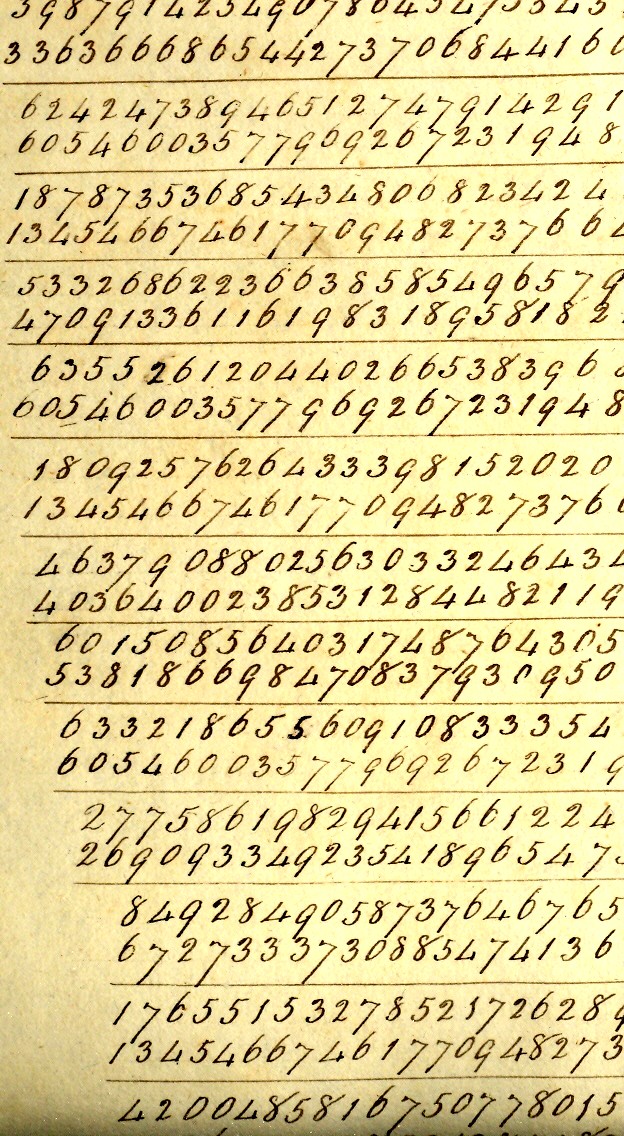 39879142549078645475845
336366686544273706844160
62424738946512747914291
60546003577969267231948
18787353685434806823424
134546674617709482737664
53326862236638585496579
47091336116198318958182
635526120440266538396
60546003577969267231948
1809257626433398152020
1345466746177094827376
4637908802563033246434
4036400238531284482119
601508564031748764305
538186698470837930950
63321865560910833354
60546003577969267231
27758619829415661224
26909334923541896547
8492849058737646765
6727333730885474136
17655153278521726289
13454667461770948273
4200485816750778015